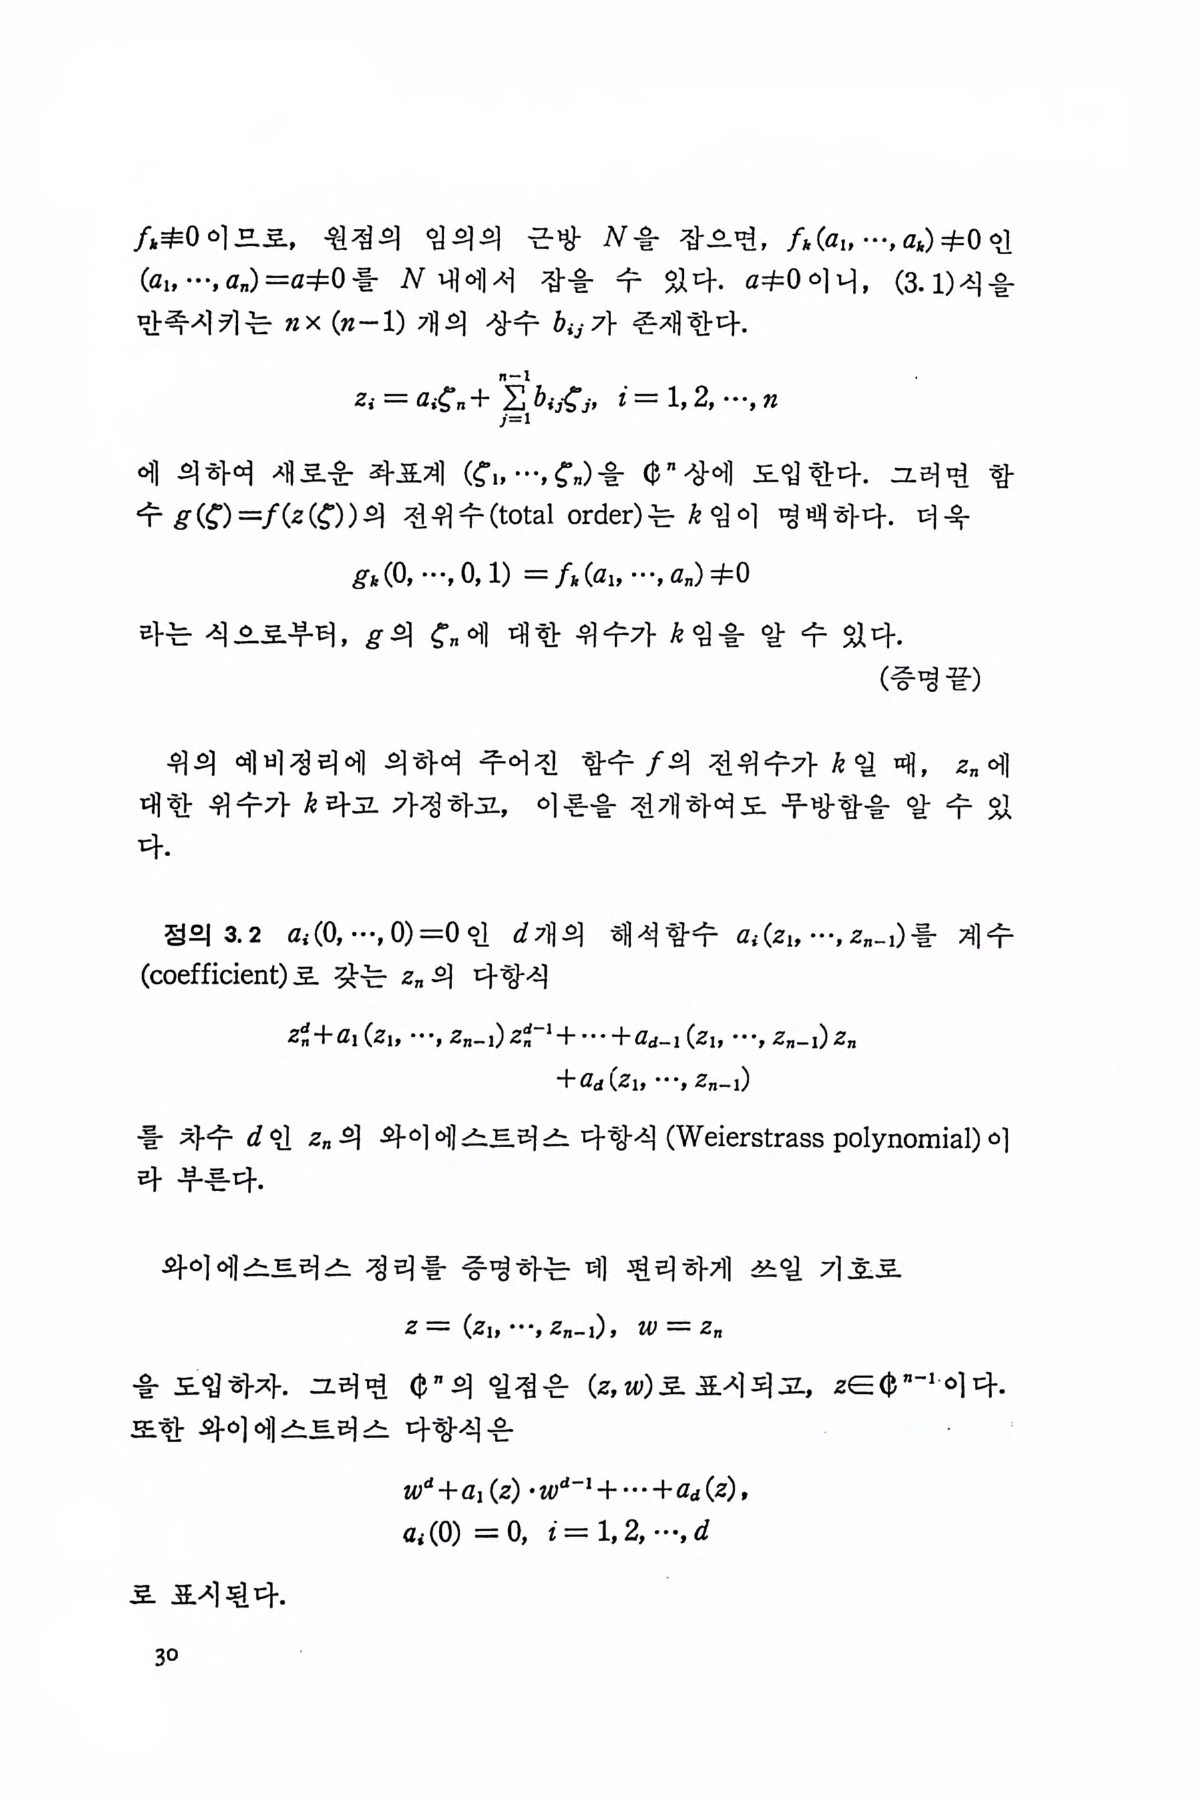 f_k≢0이므로, 원점의 임의의 근방 N을 잡으면, f_k(a_1, ⋯, a_k)≠0인
(a_1, ⋯, a_n)=a≠0를 N 내에서 잡을 수 있다. a≠0이니, (3.1)식을
만족시키는 n×(n−1) 개의 상수 b_{ij}가 존재한다.
z_i = a_iζ_n + \sum_{j=1}^{n−1} b_{ij}ζ_j, i = 1, 2, ⋯, n
에 의하여 새로운 좌표계 (ζ_1, ⋯, ζ_n)을 ℂ^n상에 도입한다. 그러면 함
수 g(ζ)=f(z(ζ))의 전위수(total order)는 k임이 명백하다. 더욱
g_k(0, ⋯, 0, 1) = f_k(a_1, ⋯, a_n)≠0
라는 식으로부터, g의 ζ_n에 대한 위수가 k임을 알 수 있다.
(증명끝)
위의 예비정리에 의하여 주어진 함수 f의 전위수가 k일 때, z_n에
대한 위수가 k라고 가정하고, 이론을 전개하여도 무방함을 알 수 있
다.
정의 3.2 a_i(0, ⋯, 0)=0인 d개의 해석함수 a_i(z_1, ⋯, z_{n−1})를 계수
(coefficient)로 갖는 z_n의 다항식
z_n^d+a_1(z_1, ⋯, z_{n−1})z_n^{d−1}+⋯+a_{d−1}(z_1, ⋯, z_{n−1})z_n
+a_d(z_1, ⋯, z_{n−1})
를 차수 d인 z_n의 와이에스트러스 다항식(Weierstrass polynomial)이
라 부른다.
와이에스트러스 정리를 증명하는 데 편리하게 쓰일 기호로
z = (z_1, ⋯, z_{n−1}), w = z_n
을 도입하자. 그러면 ℂ^n의 일점은 (z, w)로 표시되고, z∈ℂ^{n−1}이다.
또한 와이에스트러스 다항식은
w^d+a_1(z)·w^{d−1}+⋯+a_d(z),
a_i(0) = 0, i = 1, 2, ⋯, d
로 표시된다.
30